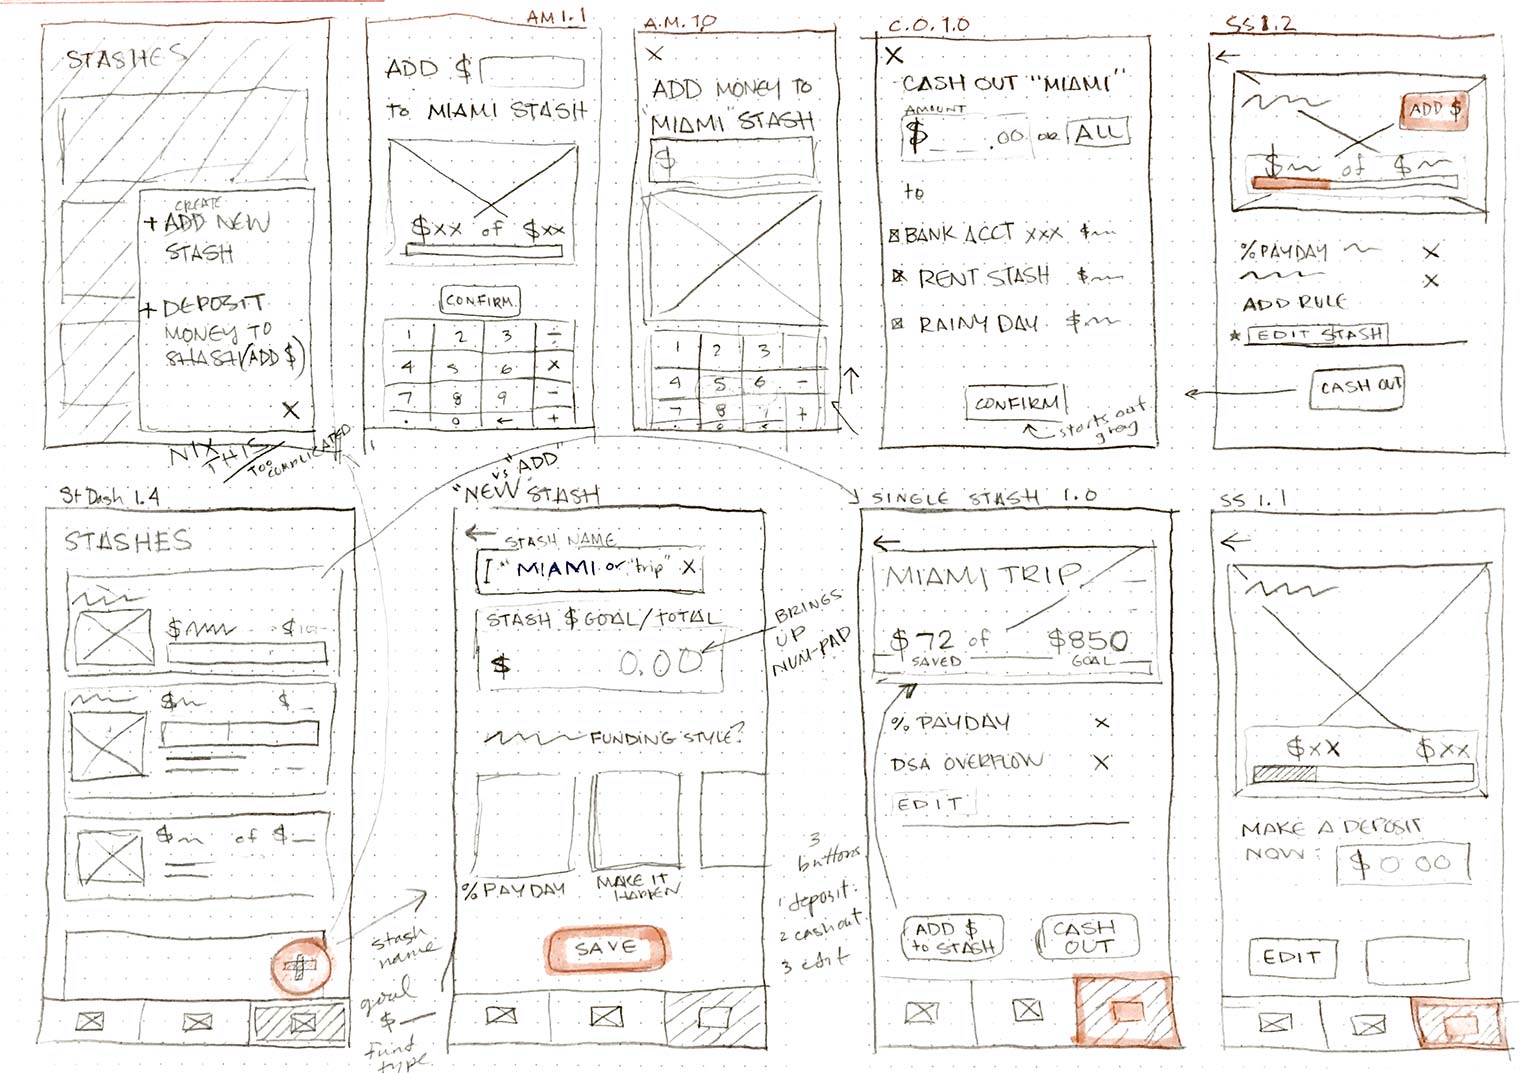 STASHES
CREATE
+ ADD NEW
STASH
+ DEPOSIT
MONEY TO
STASH (ADD $)
X
NIX
THIS
TOO
COMPLICATED
AM 1.1
ADD $
to MIAMI STASH
$XX of $XX
CONFIRM
1 2 3 ÷
4 5 6 X
7 8 9 -
. 0 ← +
A.M. 1.0
X
ADD MONEY TO
"MIAMI" STASH
$
1 2 3
4 5 6 -
7 8 9 +
C.O. 1.0
X
CASH OUT "MIAMI"
AMOUNT
$ .00 OR ALL
to
BANK ACCT XXX $
RENT STASH $
RAINY DAY $
CONFIRM
starts out
gray
SS 1.2
←
ADD $
$ of $
% PAYDAY X
X
ADD RULE
* EDIT STASH
CASH OUT
St Dash 1.4
STASHES
$ $
$ $
$ of $
+
stash
name
goal
$
fund
type
vs "ADD"
"NEW STASH
←
STASH NAME
"MIAMI or "trip" X
STASH $ GOAL/TOTAL
$ 0.00
BRINGS
UP
NUM-PAD
FUNDING STYLE?
% PAYDAY
MAKE IT
HAPPEN
SAVE
3
buttons
1 deposit:
2 cashout
3 edit
SINGLE STASH 1.0
←
MIAMI TRIP
$72 of $850
SAVED GOAL
% PAYDAY X
DSA OVERFLOW X
EDIT
ADD $
to STASH
CASH
OUT
SS 1.1
←
$XX $XX
MAKE A DEPOSIT
NOW: $0.00
EDIT